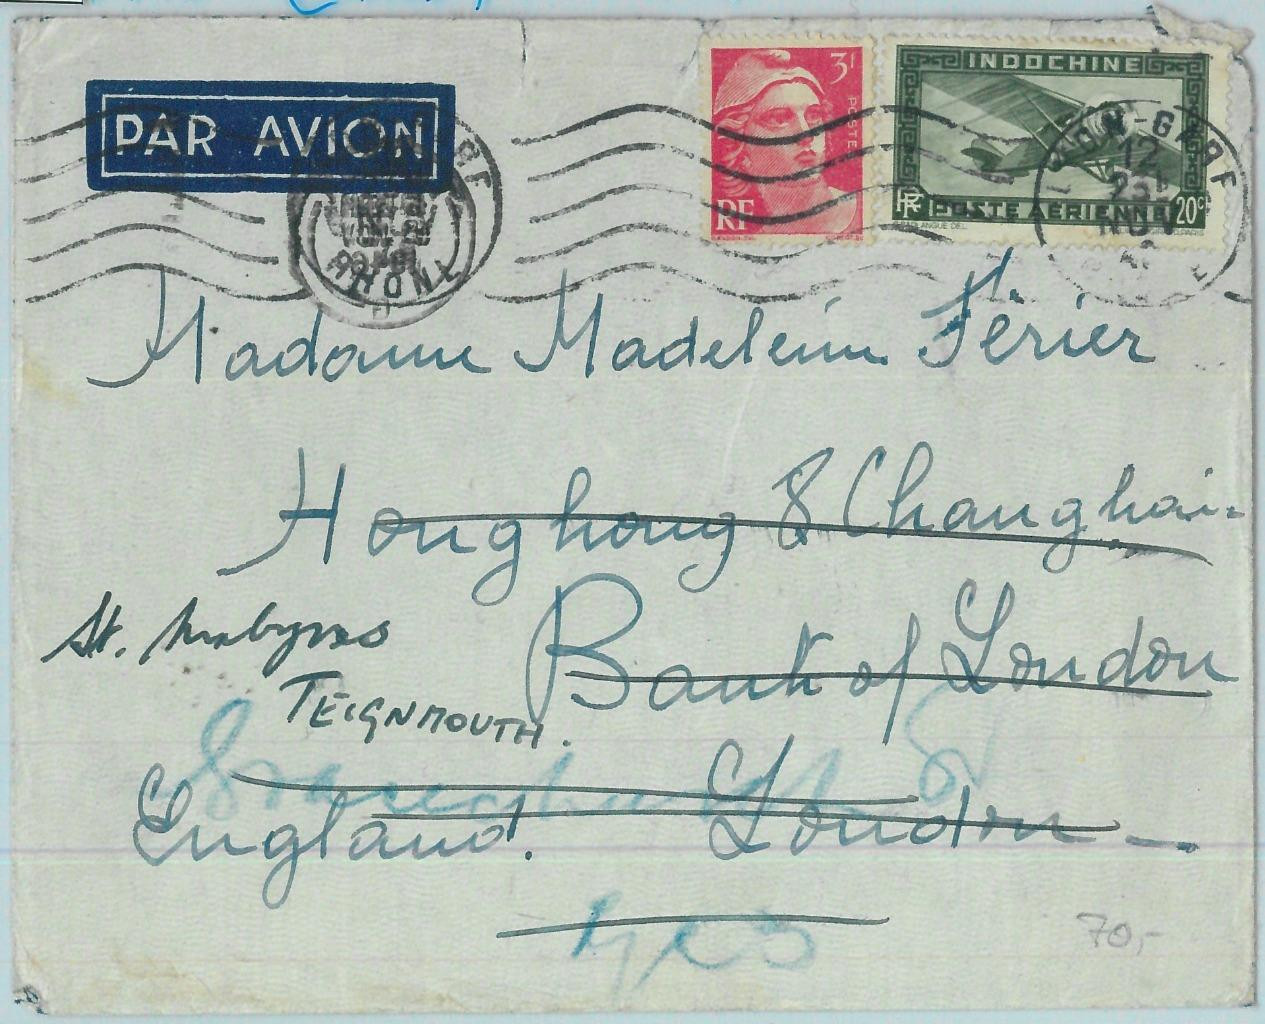 PAR AVION
3F
POSTE
RF
INDOCHINE
RF POSTE AÉRIENNE 20c
LYON-GARE
12
NOV
RHONE
Madame Madeleine Férier
Hongkong & Changhai-
Bank of London
St.
TEIGNMOUTH.
Gracechurch St
England. London
70,-